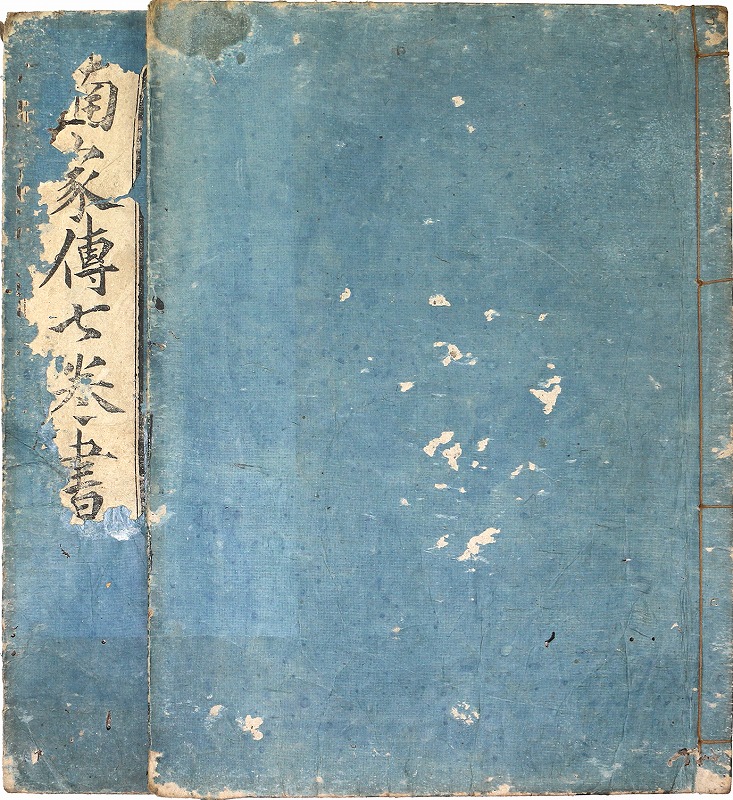 家傳七巻書